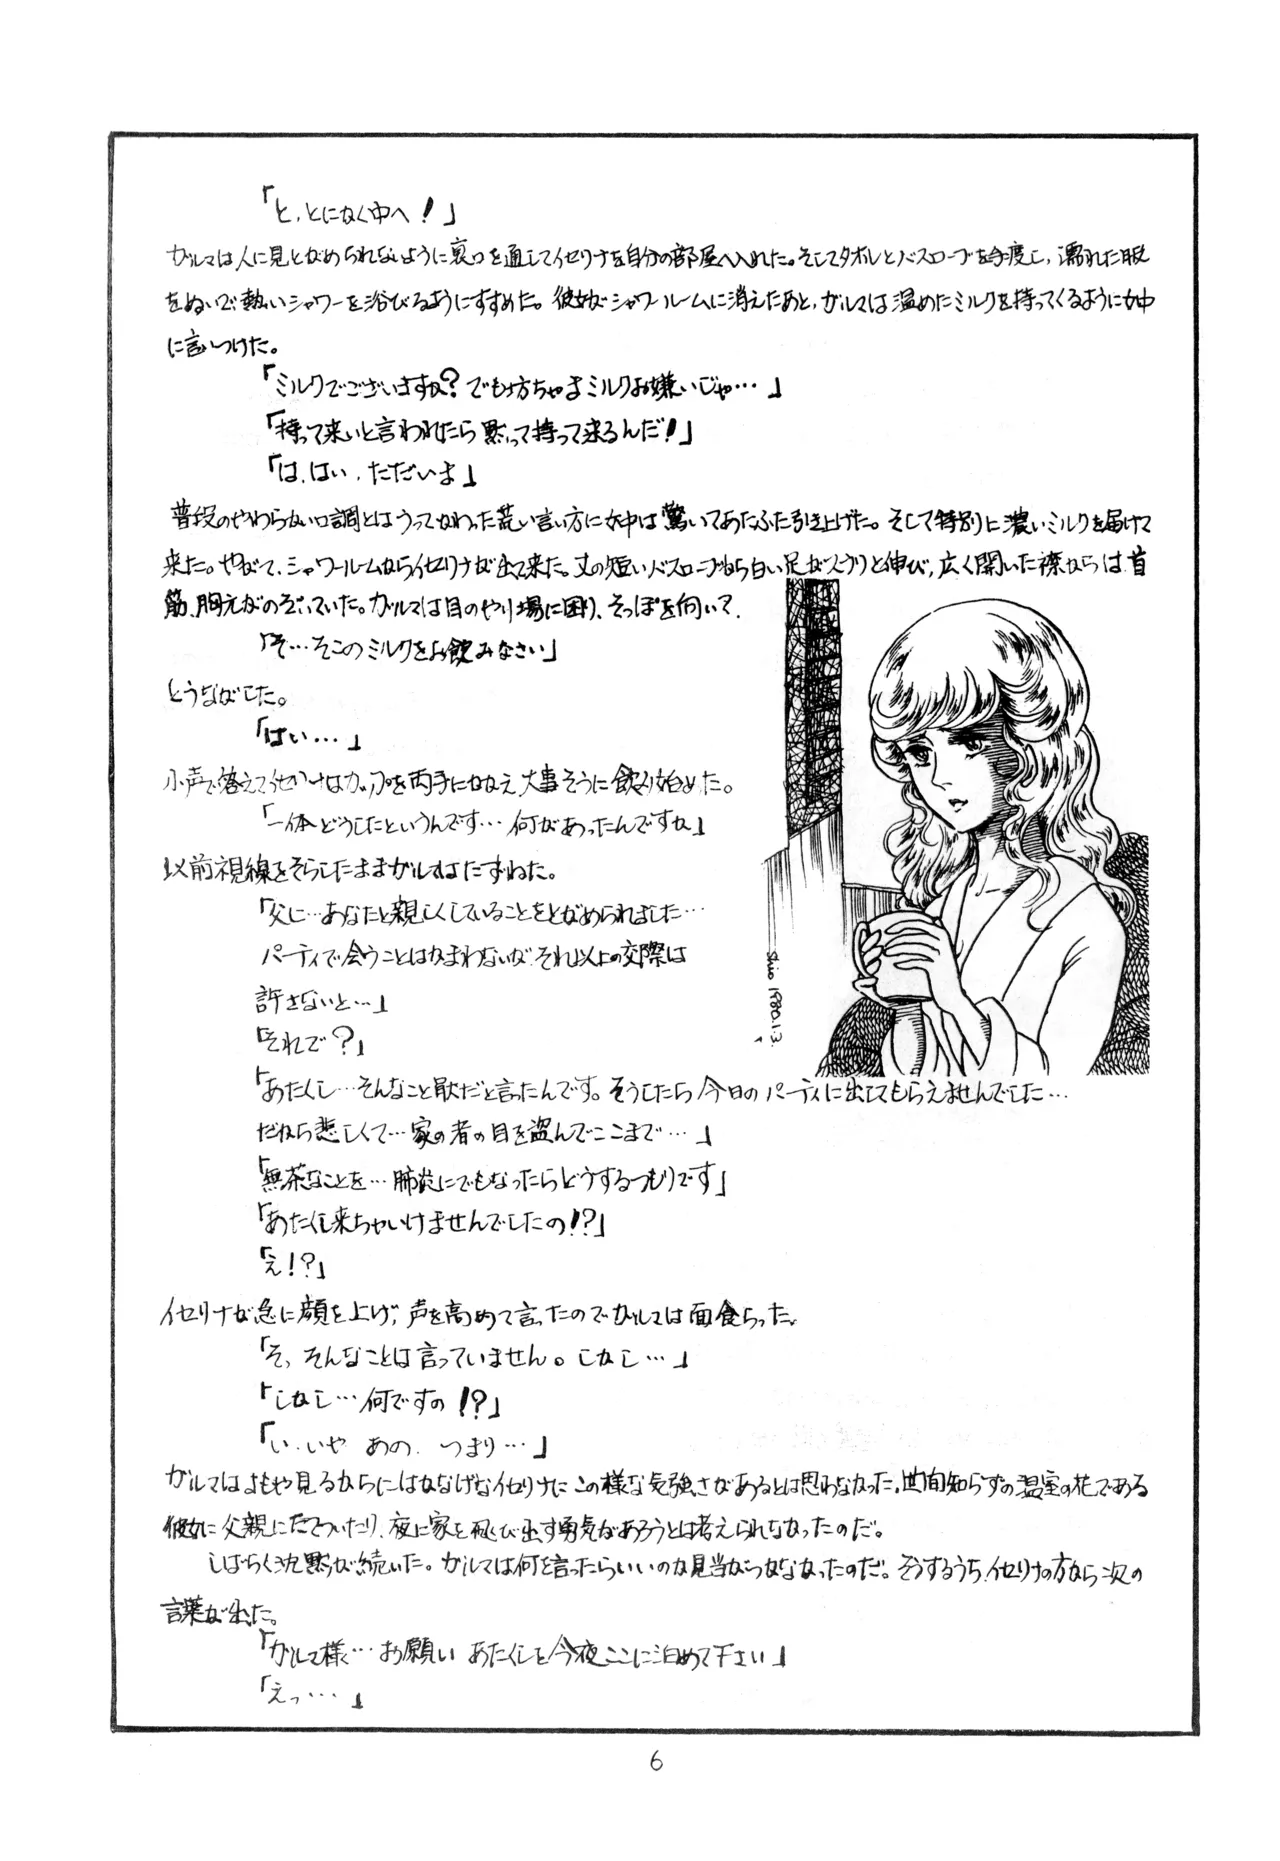 「と、とにかく中へ!」
ガルマは人に見とがめられないように裏口を通してイセリナを自分の部屋へ入れた。そしてタオルとバスローブを手度し、濡れた服
をぬいで、熱いシャワーを浴びるようにすすめた。彼女がシャワールームに消えたあと、ガルマは温めたミルクを持ってくるように女中
に言いつけた。
「ミルクでございますか?でも坊ちゃまミルクお嫌いじゃ…」
「持って来いと言われたら黙って持って来るんだ!」
「は、はい、ただいま」
普段のやわらかい口調とはうってかわった荒い言い方に女中は驚いてあたふた引き上げた。そして特別に濃いミルクを届けて
来た。やがて、シャワールームからイセリナが出て来た。丈の短いバスローブから白い足がスラリと伸び、広く開いた襟からは首
筋、胸元がのぞいていた。ガルマは目のやり場に困り、そっぽを向いて、
「そ…そこのミルクをお飲みなさい」
とうながした。
「はい…」
小声で答えてイセリナはカップを両手にかかえ大事そうに飲み始めた。
「一体どうしたというんです…何があったんですか」
以前視線をそらしたままガルマはたずねた。
「父に…あなたと親しくしていることをとがめられました…
パーティで会うことはかまわないが、それ以上の交際は
許さないと…」
「それで?」
「あたくし…そんなこと厭だと言ったんです。そうしたら今日のパーティに出してもらえませんでした…
だから悲しくて…家の者の目を盗んでここまで…」
「無茶なことを…肺炎にでもなったらどうするつもりです」
「あたくし来ちゃいけませんでしたの!?」
「え!?」
イセリナが急に顔を上げ、声を高めて言ったのでガルマは面食らった。
「そ、そんなことは言っていません。しかし…」
「しかし…何ですの!?」
「い、いや あの、つまり…」
ガルマはよもや見るからにはかなげなイセリナにこの様な気強さがあるとは思わなかった。世間知らずの温室の花である
彼女に父親にたてついたり、夜に家を飛び出す勇気があろうとは考えられなかったのだ。
しばらく沈黙が続いた。ガルマは何を言ったらいいのか見当がつかなかったのだ。そうするうち、イセリナの方から次の
言葉が出た。
「ガルマ様…お願い あたくしを今夜ここに泊めて下さい」
「えっ…」
Shio 1980.1.3.
6